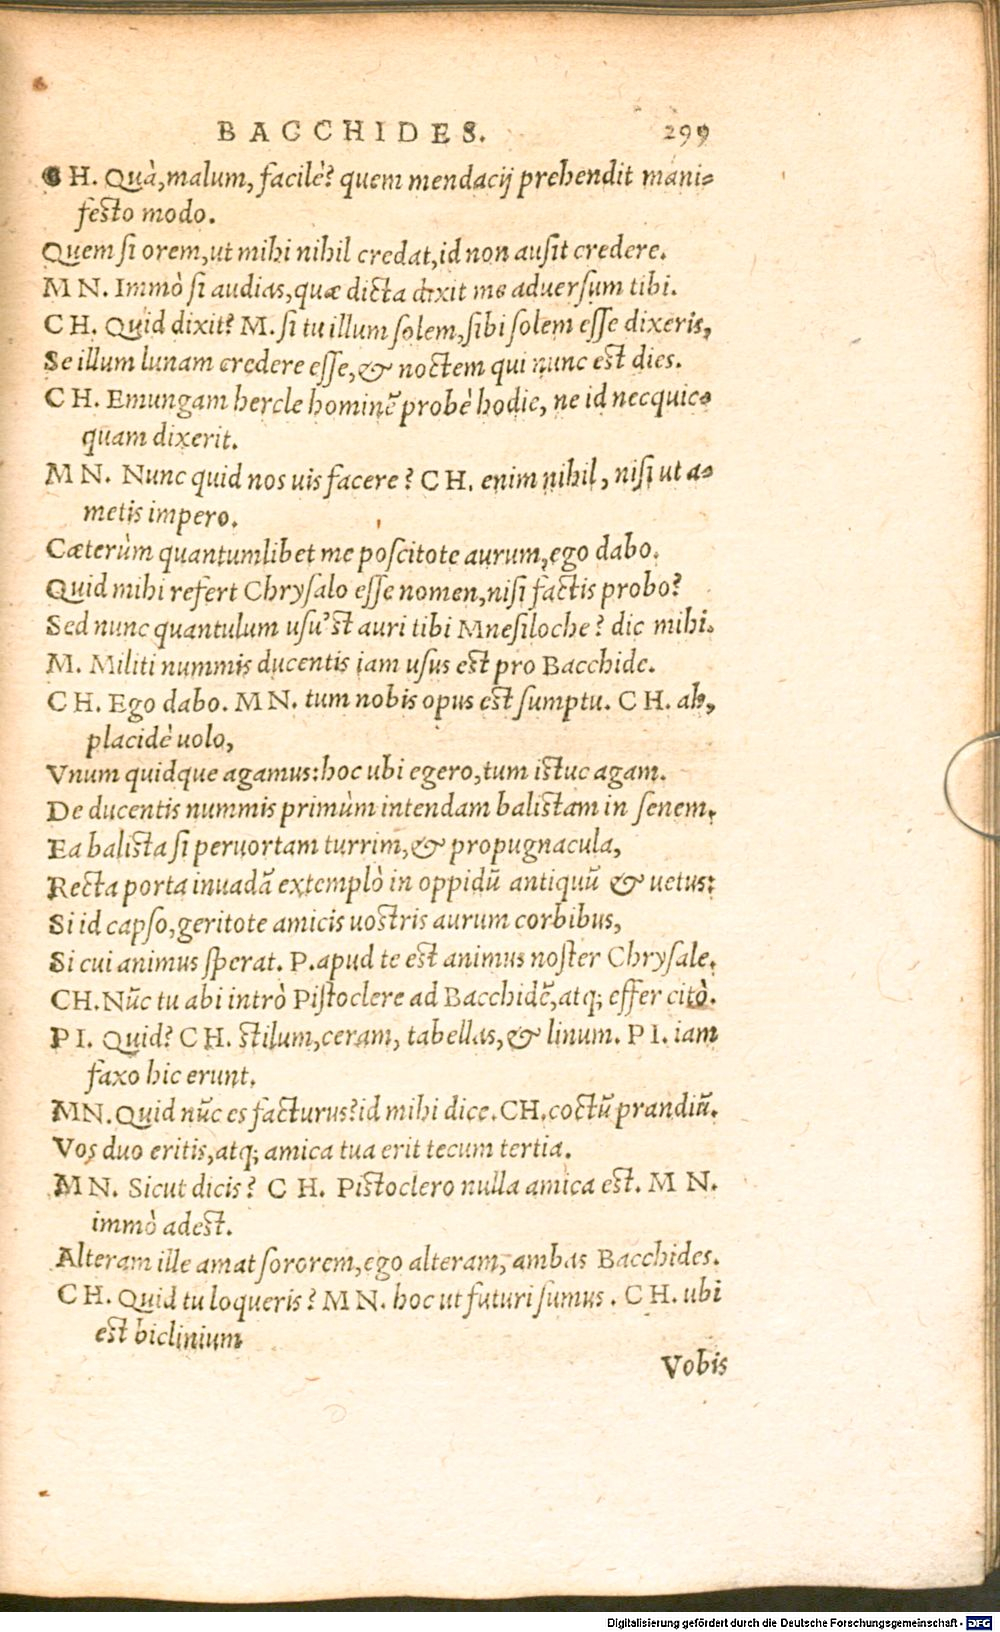 BACCHIDES. 299
CH. Quà, malum, facilè? quem mendacij prehendit mani-
festo modo.
Quem si orem, ut mihi nihil credat, id non ausit credere.
MN. Immò si audias, quæ dicta dixit me aduersum tibi.
CH. Quid dixit? M. si tu illum solem, sibi solem esse dixeris,
Se illum lunam credere esse, & noctem qui nunc est dies.
CH. Emungam hercle hominē probè hodie, ne id necquic-
quam dixerit.
MN. Nunc quid nos uis facere? CH. enim nihil, nisi ut a-
metis impero.
Cæterùm quantumlibet me poscitote aurum, ego dabo.
Quid mihi refert Chrysalo esse nomen, nisi factis probo?
Sed nunc quantulum usu'st auri tibi Mnesiloche? dic mihi.
M. Militi nummis ducentis iam usus est pro Bacchide.
CH. Ego dabo. MN. tum nobis opus est sumptu. CH. ah,
placidè uolo,
Vnum quidque agamus: hoc ubi egero, tum istuc agam.
De ducentis nummis primùm intendam balistam in senem.
Ea balista si peruortam turrim, & propugnacula,
Recta porta inuadā extemplò in oppidū antiquū & uetus:
Si id capso, geritote amicis uostris aurum corbibus,
Si cui animus sperat. P. apud te est animus noster Chrysale.
CH. Nūc tu abi intrò Pistoclere ad Bacchidē, atq; effer citò.
PI. Quid? CH. stilum, ceram, tabellas, & linum. PI. iam
faxo hic erunt.
MN. Quid nūc es facturus? id mihi dice. CH. coctū prandiū.
Vos duo eritis, atq; amica tua erit tecum tertia.
MN. Sicut dicis? CH. Pistoclero nulla amica est. MN.
immò adest.
Alteram ille amat sororem, ego alteram, ambas Bacchides.
CH. Quid tu loqueris? MN. hoc ut futuri sumus. CH. ubi
est biclinium
Vobis
Digitalisierung gefördert durch die Deutsche Forschungsgemeinschaft - DFG